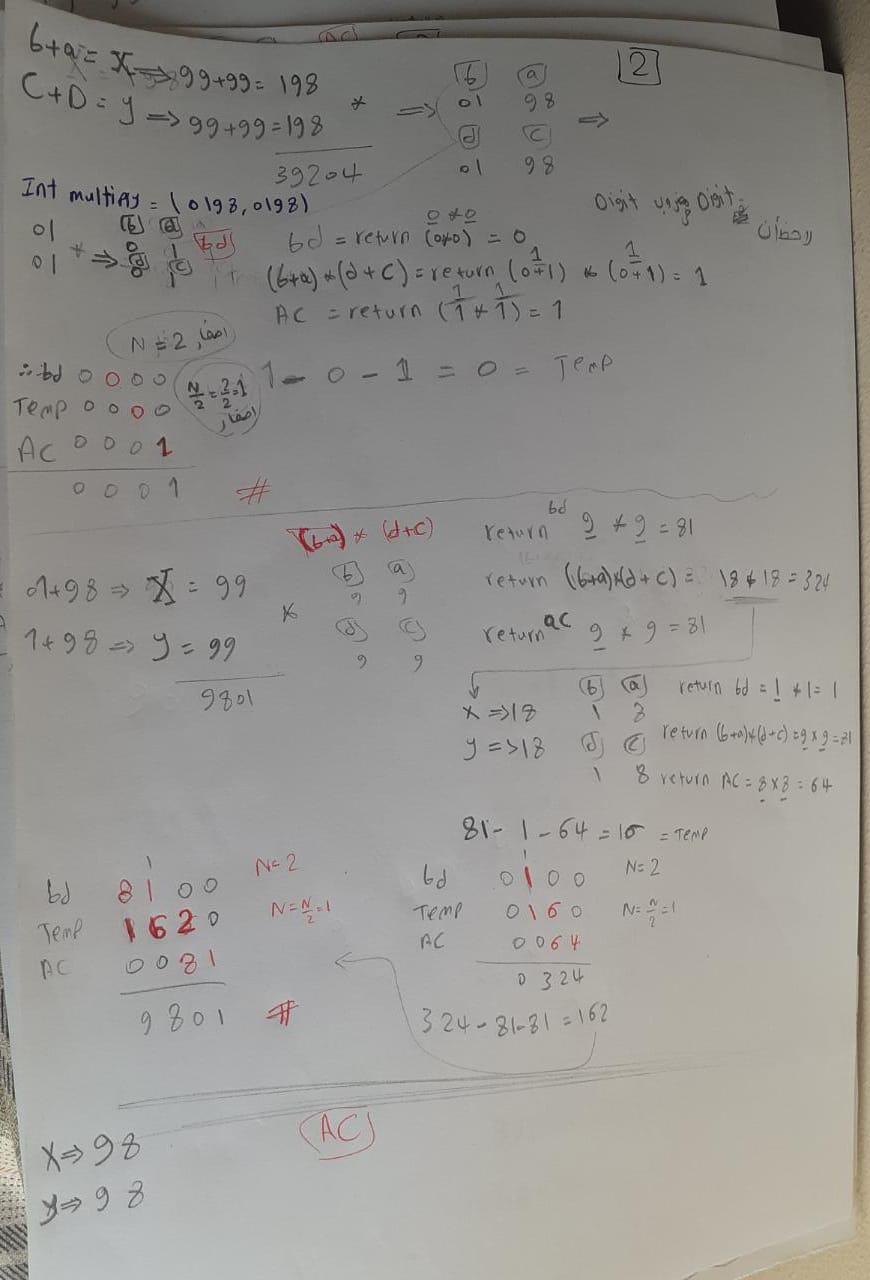 2
b+a = X => 99+99 = 198
C+D = y => 99+99 = 198
*
39204
=> b a
01 98
d c
01 98
=>
Int multiply = (0198, 0198)
Digit مضروب Digit
01
01
* =>
b a
0 1
d c
0 1
bd
0*0
bd = return (0*0) = 0
(b+a)*(d+c) = return (0+1) * (0+1) = 1
1 1
AC = return (1*1) = 1
1 1
N = 2 اصفار
∴ bd 0000
N/2 = 2/2 = 1 اصفار
1 - 0 - 1 = 0 = Temp
Temp 0000
AC 0001
0001 #
(b+a) * (d+c)
1+98 => X = 99
1+98 => y = 99
*
9801
b a
9 9
d c
9 9
return bd 9 * 9 = 81
return (b+a)*(d+c) = 18 * 18 = 324
return ac 9 * 9 = 81
x => 18
y => 18
b a
1 8
d c
1 8
return bd = 1 * 1 = 1
return (b+a)*(d+c) = 9 x 9 = 81
return AC = 8 x 8 = 64
81 - 1 - 64 = 16 = Temp
1
bd 0100 N=2
Temp 0160 N = N/2 = 1
AC 0064
0324
324 - 81 - 81 = 162
1
bd 8100 N=2
Temp 1620 N = N/2 = 1
AC 0081
9801 #
AC
X => 98
y => 98